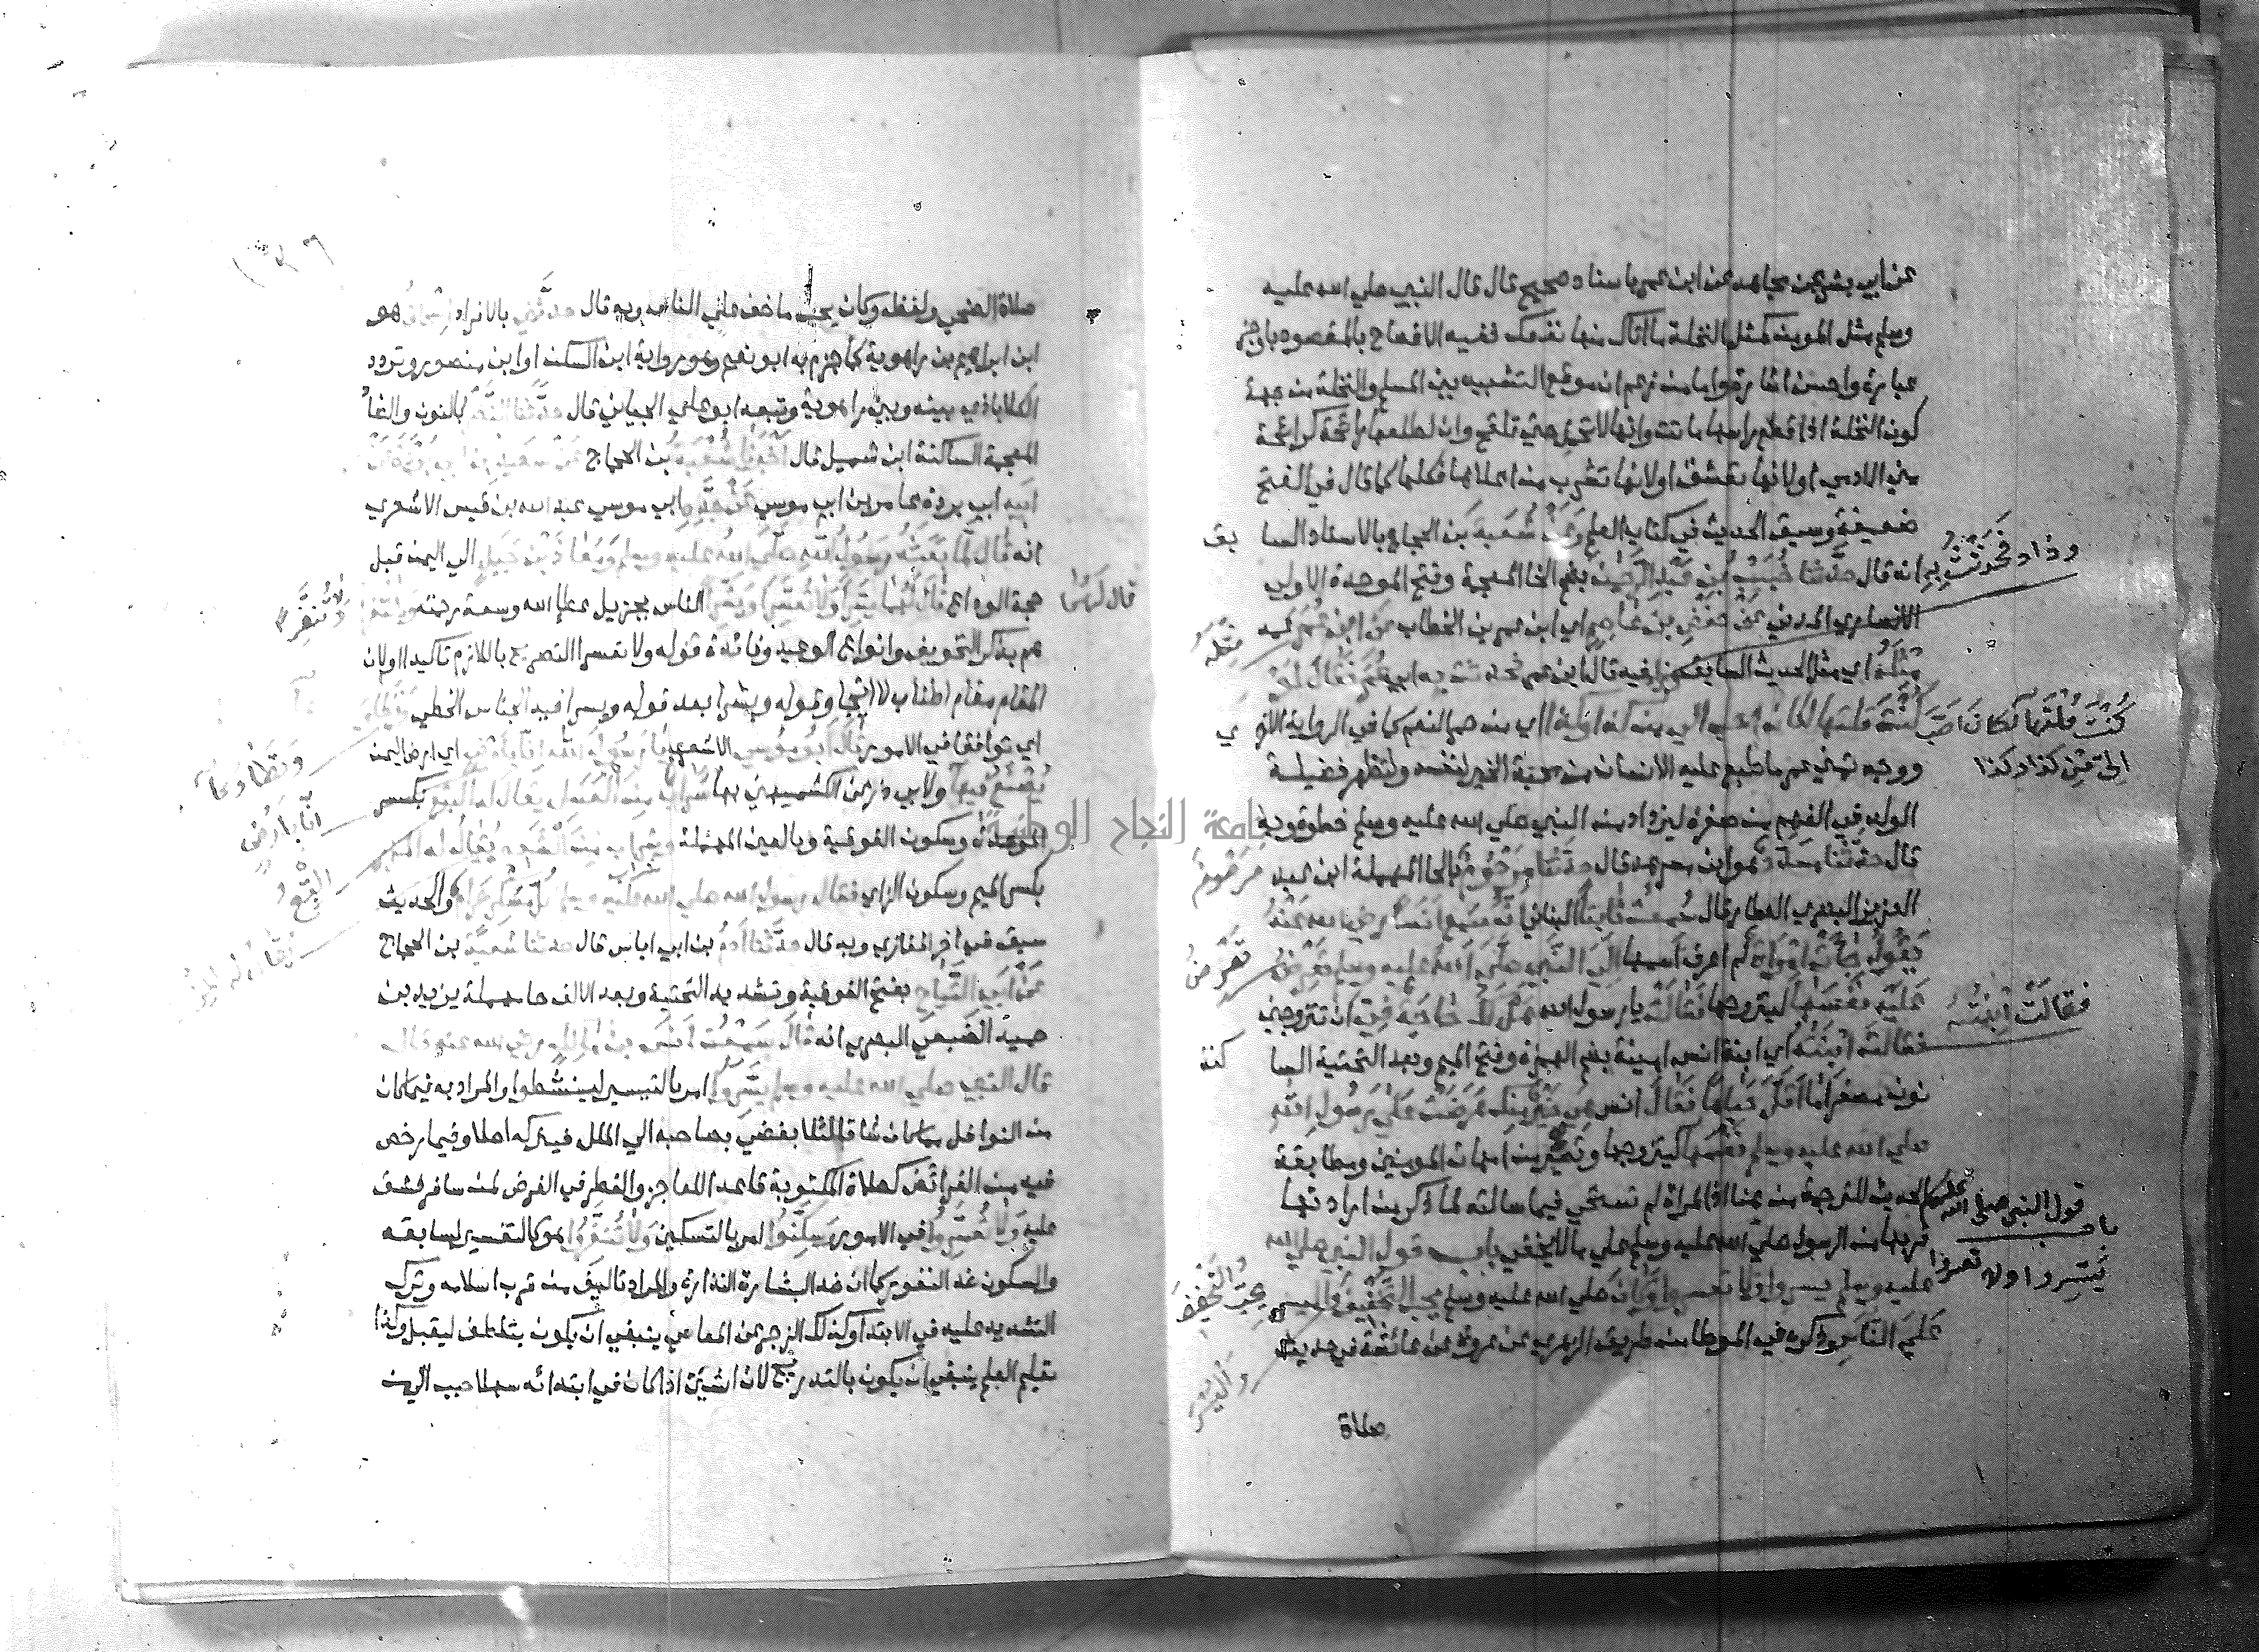 عن ابي بشر عن مجاهد عن ابن عمر باسناد صحيح قال قال النبي صلي الله عليه
وسلم مثل المومن كمثل النخلة ما اتاك منها نفعك ففيه الافصاح بالمقصود باوجز
عبارة واحسن اشارة واما من زعم ان موقع التشبيه بين المسلم والنخلة من جهة
كون النخلة اذا قطع راسها ماتت وانها لا تحمل حتي تلقح وان لطلعها رائحة كرائحة
مني الادمي او لانها تعشق او لانها تشرب من اعلاها فكلها كما قال في الفتح
ضعيفة وسبق الحديث في كتاب العلم وَعَنْ شُعْبَةَ بن الحجاج بالاسناد السا بق
انه قال حدثنا خُبَيْبُ بْنُ عَبْدِ الرَّحْمَنِ بضم الخا المعجمة وفتح الموحدة الاولي
وزاد فحدثت به
الانصاري المدني عَنْ حَفْصِ بْنِ عَاصِمٍ اي ابن عمر بن الخطاب عن ابْنِ عُمَرَ
مثله
مِثْلَهُ اي مثل الحديث السابق وزاد فيه قال ابن عمر فحدثت به ابي عُمَرَ فَقَالَ لَوْ
كُنْتَ قُلْتَهَا لكان احب الي من كذا وكذا اي من حمر النعم كما في الرواية الاخر ي
كُنْتَ قُلْتَهَا لَكَانَ اَحَبَّ
الي من كذا وكذا
ووجه تمني عمر ما طبع عليه الانسان من محبة الخير لنفسه ولتظهر فضيلة
الولد في الفهم من صغره ليزداد من النبي صلي الله عليه وسلم حظوة وبه
قال حَدَّثَنَا مُسَدَّدٌ هو ابن مسرهد قال حَدَّثَنَا مَرْحُومٌ بالحا المهملة ابن عبد
مرحوم
العزيز البصري العطار قال سَمِعْتُ ثَابِتًا البناني اَنَّهُ سَمِعَ اَنَسًا رضي الله عَنْهُ
يَقُولُ جَاءَتِ امْرَاَةٌ لم اعرف اسمها اِلَي النَّبِيِّ صَلَّي اللهُ عليه وسلم تَعْرِضُ
تَعْرِضُ
عَلَيْهِ نَفْسَهَا ليتزوجها فَقَالَتْ يا رسول الله هَلْ لَكَ حَاجَةٌ فِيَّ ان تتزوجني
فقالت ابنته
فقالت ابْنَتُهُ اي ابنة انس امينة بضم الهمزة وفتح الميم وبعد التحتية السا كنة
نون مصغرا مَا اَقَلَّ حَيَاءَهَا فَقَالَ انس هِيَ خَيْرٌ مِنْكِ عَرَضَتْ عَلَي رَسُولِ اللهِ
صلي الله عليه وسلم نَفْسَهَا ليتزوجها وتصير من امهات المومنين ومطابقة
الحديث للترجمة من هنا اذ المراة لم تستحي فيما سالته لما ذكر من ارادتها
قربها من الرسول صلي الله عليه وسلم علي ما لا يخفي باب قول النبي صلي الله
باب قول النبي صلي الله عليه وسلم
يَسِّرُوا ولا تعسروا
عليه وسلم يسروا ولا تعسروا وَكَانَ صلي الله عليه وسلم يُحِبُّ التَّخْفِيفَ وَالْيُسْرَ
يحب التَّخْفِيفَ
وَالْيُسْرَ
عَلَي النَّاسِ ذكره في الموطا من طريق الزهري عن عروة عن عائشة في حديث
صلاة
صلاة الضحي ولفظه وكان يحب ما خف علي الناس وبه قال حدثني بالافراد اسحاق هو
ابن ابراهيم بن راهوية كما جزم به ابو نعيم وهو رواية ابن السكن او ابن منصور وتردد
الكلاباذي بينه وبين راهوية وتبعه ابو علي الجياني قال حَدَّثَنَا النَّضْرُ بالنون والضاد
المعجمة الساكنة ابن شميل قال اَخْبَرَنَا شُعْبَةُ بن الحجاج عَنْ سَعِيدِ بْنِ ابي بُرْدَةَ عَنْ
ابيه ابي بردة عامر بن ابي موسي عَنْ جَدِّهِ ابي موسي عبد الله بن قيس الاشعري
انه قَالَ لَمَّا بَعَثَهُ رَسُولُ اللهِ صَلَّي اللهُ عليه وسلم وَمُعَاذَ بْنَ جَبَلٍ الي اليمن قبل
حجة الوداع قَالَ لَهُمَا يَسِّرَا وَلَا تُعَسِّرَا وَبَشِّرَا الناس بجزيل عطا الله وسعة رحمته وَلَا تُنَفِّرَا
قال لَهُمَا
وَلَا تُنَفِّرَا
هم بذكر التخويف وانواع الوعيد وفائدة قوله ولا تعسرا التصريح باللازم تاكيدا اولان
المقام مقام اطناب لا ايجاز وقوله وبشرا بعد قوله ويسرا فيه الجناس الخطي وَتَطَاوَعَا
وَتَطَاوَعَا
اي توافقا في الامور قَالَ اَبُو مُوسَي الاشعري يَا رَسُولَ اللهِ اِنَّا بِاَرْضٍ اي ارض اليمن
انا بِاَرْضٍ
يُصْنَعُ فِيهَا ولابي ذر عن الكشميهني بها شَرَابٌ مِنَ العَسَلِ يقال له البِتْعُ بكسر
البِتْعُ
الموحدة وسكون الفوقية وبالعين المهملة وشراب مِنَ الشَّعِيرِ يُقَالُ له المزر
شراب
بكسر الميم وسكون الزاي فقال رسول الله صلي الله عليه وسلم كُلُّ مُسْكِرٍ حَرَامٌ والحديث
سبق في اخر المغازي وبه قال حَدَّثَنَا اَدَمُ بن ابي اياس قال حدثنا شُعْبَةُ بن الحجاج
عَنْ اَبِي التَّيَّاحِ بفتح الفوقية وتشديد التحتية وبعد الالف حا مهملة يزيد بن
حميد الضبعي البصري انه قَالَ سَمِعْتُ اَنَسَ بْنَ مَالِكٍ رضي الله عنه قال
قال النبي صلي الله عليه وسلم يَسِّرُوا امر بالتيسير لينشطوا والمراد به فيما كان
من النوافل مما كان شاقا لئلا يفضي بصاحبه الي الملل فيتركه اصلا وفيما رخص
فيه من الفرائض كصلاة المكتوبة قاعدا للعاجز والفطر في الفرض لمن سافر فشق
عليه وَلَا تُعَسِّرُوا في الامور وَسَكِّنُوا امر بالتسكين وَلَا تُنَفِّرُوا هو كالتفسير لسابقه
والسكون ضد النفور كما ان ضد البشارة النذارة والمراد تاليف من قرب اسلامه وترك
التشديد عليه في الابتدا وكذلك الزجر عن المعاصي ينبغي ان يكون بتلطف ليقبل وكذا
تعليم العلم ينبغي ان يكون بالتدريج لان الشيئ اذا كان في ابتدائه سهلا حبب الي من
جامعة النجاح الوطنية